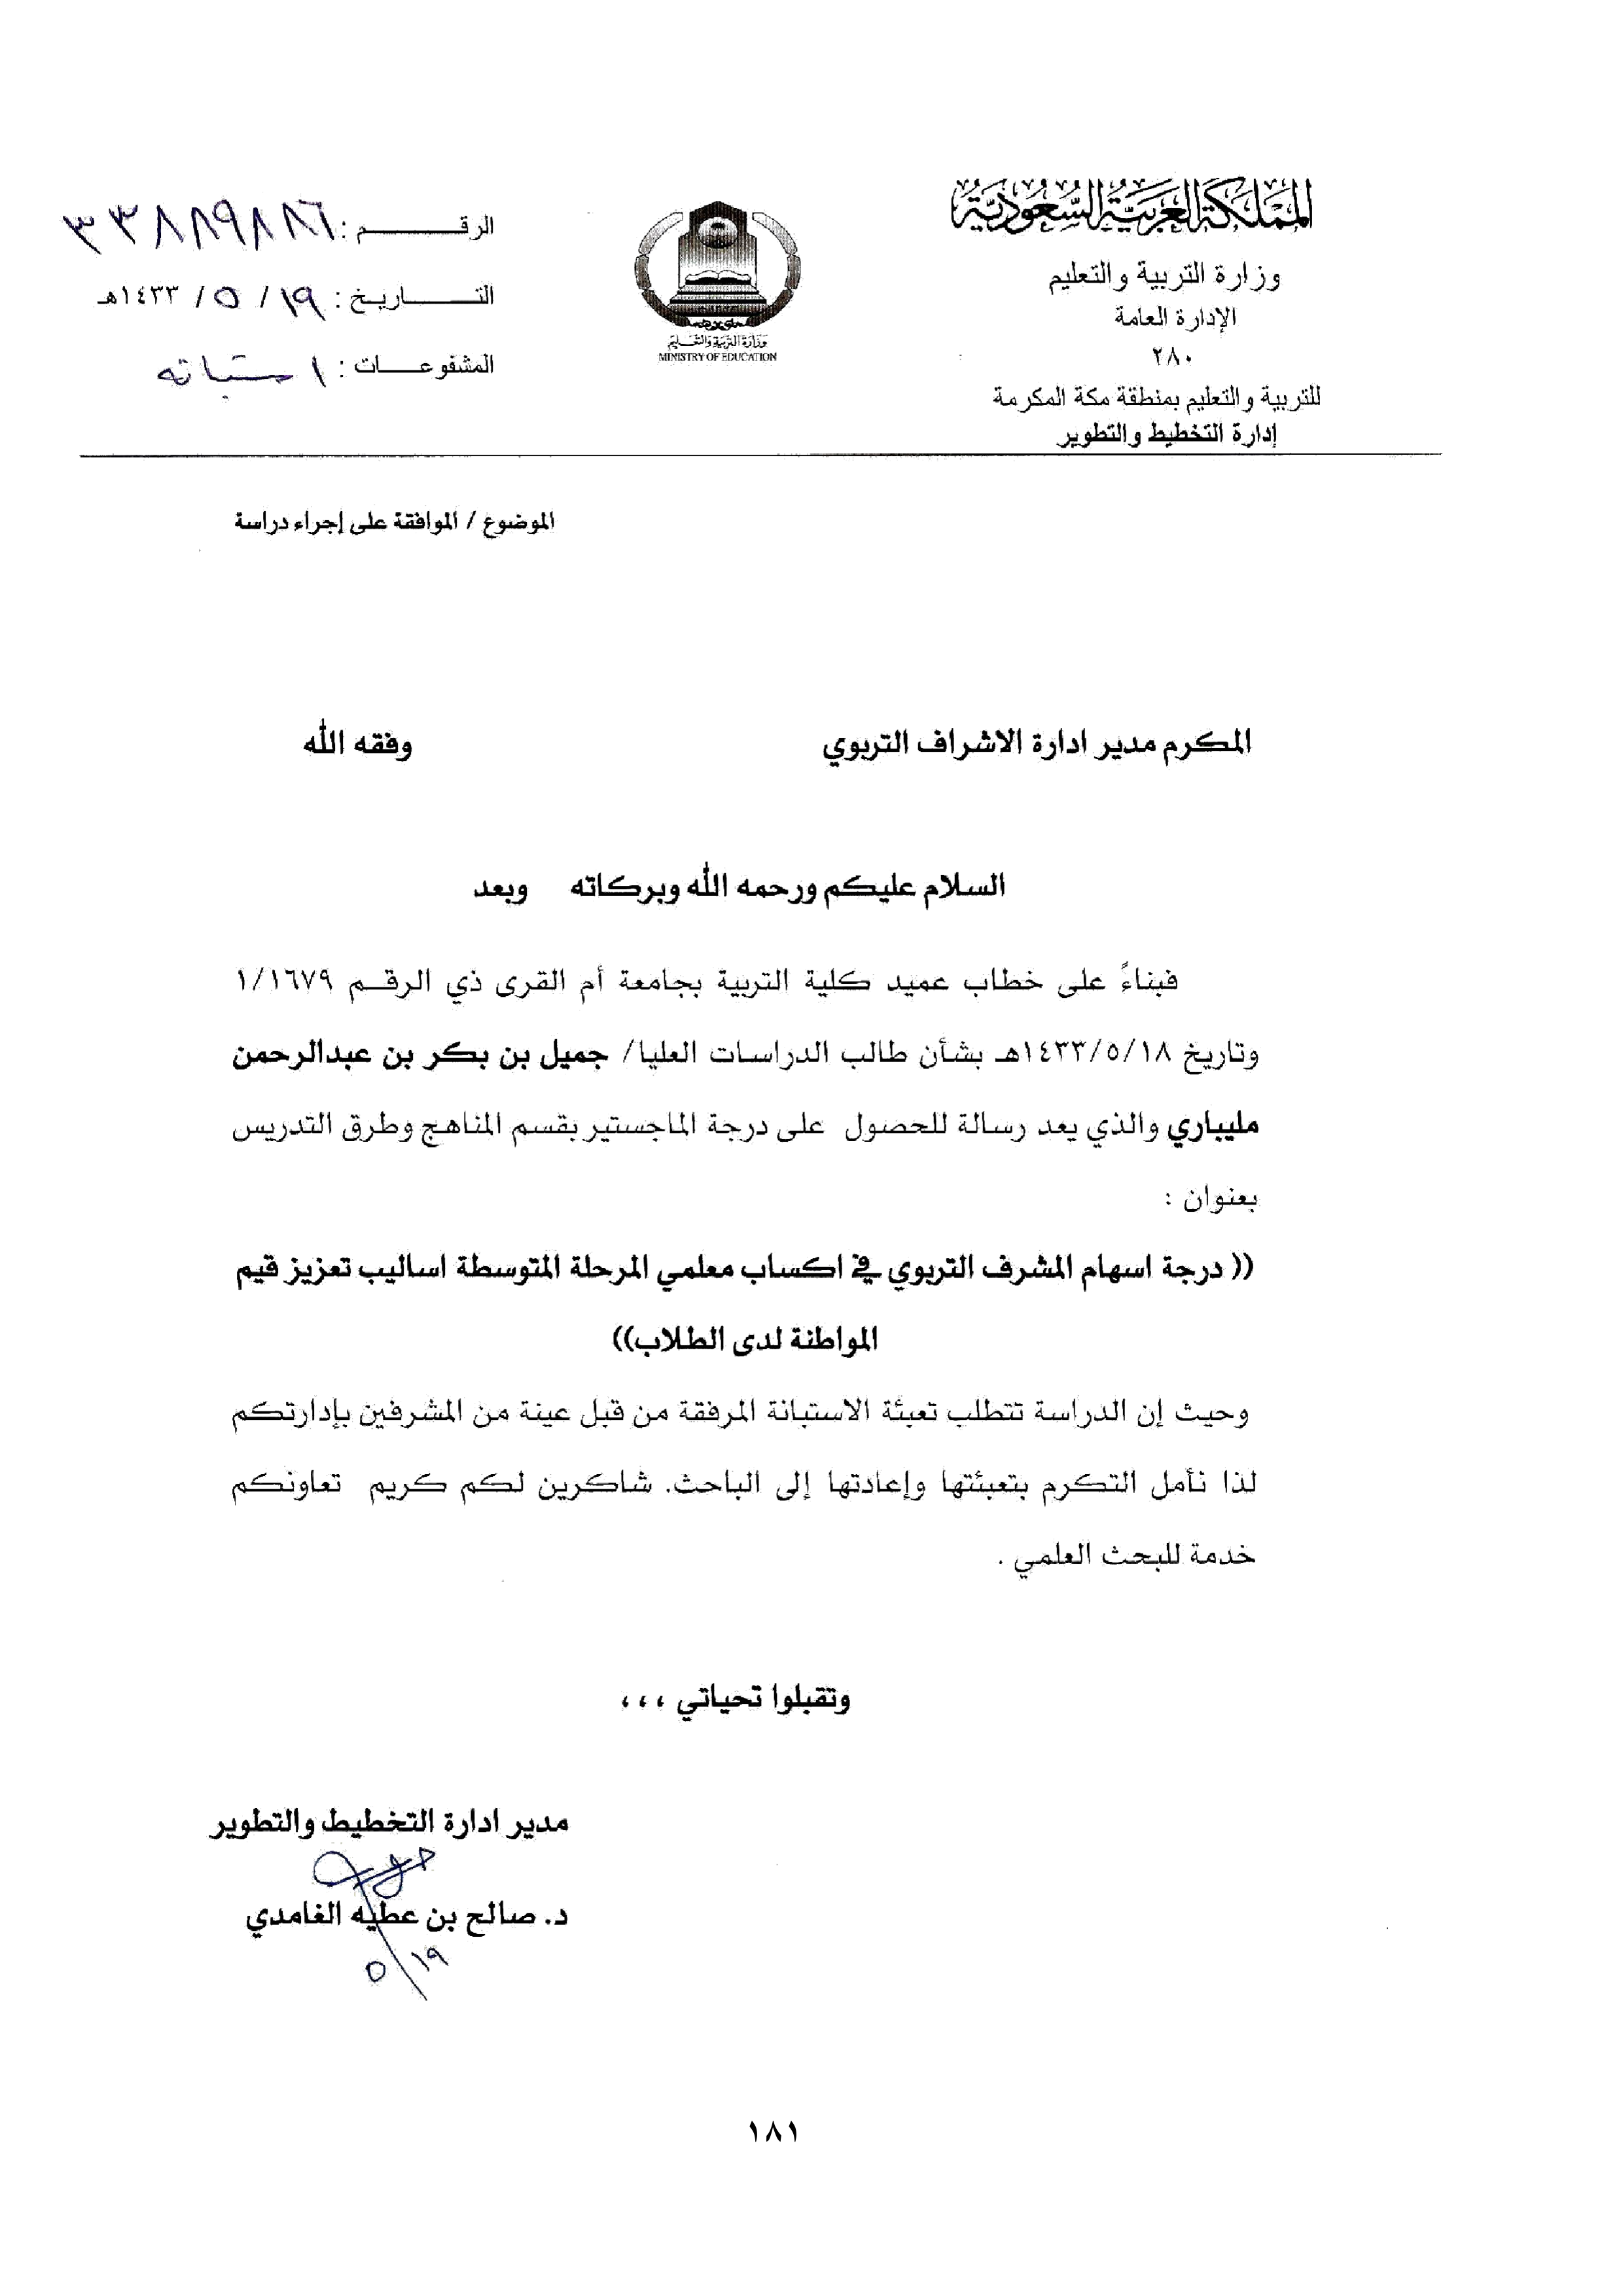 المملكة العربية السعودية
وزارة التربية والتعليم
الإدارة العامة
٢٨٠
للتربية والتعليم بمنطقة مكة المكرمة
إدارة التخطيط والتطوير
وزارة التربية والتعليم
MINISTRY OF EDUCATION
الرقم : ٣٣٨٨٩٨٨٦
التاريخ : ١٩ / ٥ / ١٤٣٣هـ
المشفوعات : استبانه
الموضوع / الموافقة على إجراء دراسة
المكرم مدير ادارة الاشراف التربوي وفقه الله
السلام عليكم ورحمه الله وبركاته وبعد
فبناءً على خطاب عميد كلية التربية بجامعة أم القرى ذي الرقم ١/١٦٧٩
وتاريخ ١٤٣٣/٥/١٨هـ بشأن طالب الدراسات العليا/ جميل بن بكر بن عبدالرحمن
مليباري والذي يعد رسالة للحصول على درجة الماجستير بقسم المناهج وطرق التدريس
بعنوان :
(( درجة اسهام المشرف التربوي في اكساب معلمي المرحلة المتوسطة اساليب تعزيز قيم
المواطنة لدى الطلاب))
وحيث إن الدراسة تتطلب تعبئة الاستبانة المرفقة من قبل عينة من المشرفين بإدارتكم
لذا نأمل التكرم بتعبئتها وإعادتها إلى الباحث. شاكرين لكم كريم تعاونكم
خدمة للبحث العلمي .
وتقبلوا تحياتي ،،،
مدير ادارة التخطيط والتطوير
د. صالح بن عطيه الغامدي
٥/١٩
١٨١